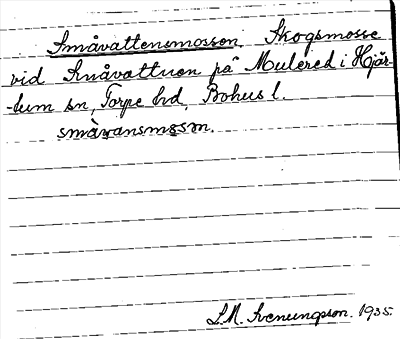 Småvattensmossen. Skogsmosse
vid Småvattnen på Mulered i Hjär-
-tum sn, Torpe hd, Bohus l.
småvansmosən.
L.M. Svenungsson. 1935.